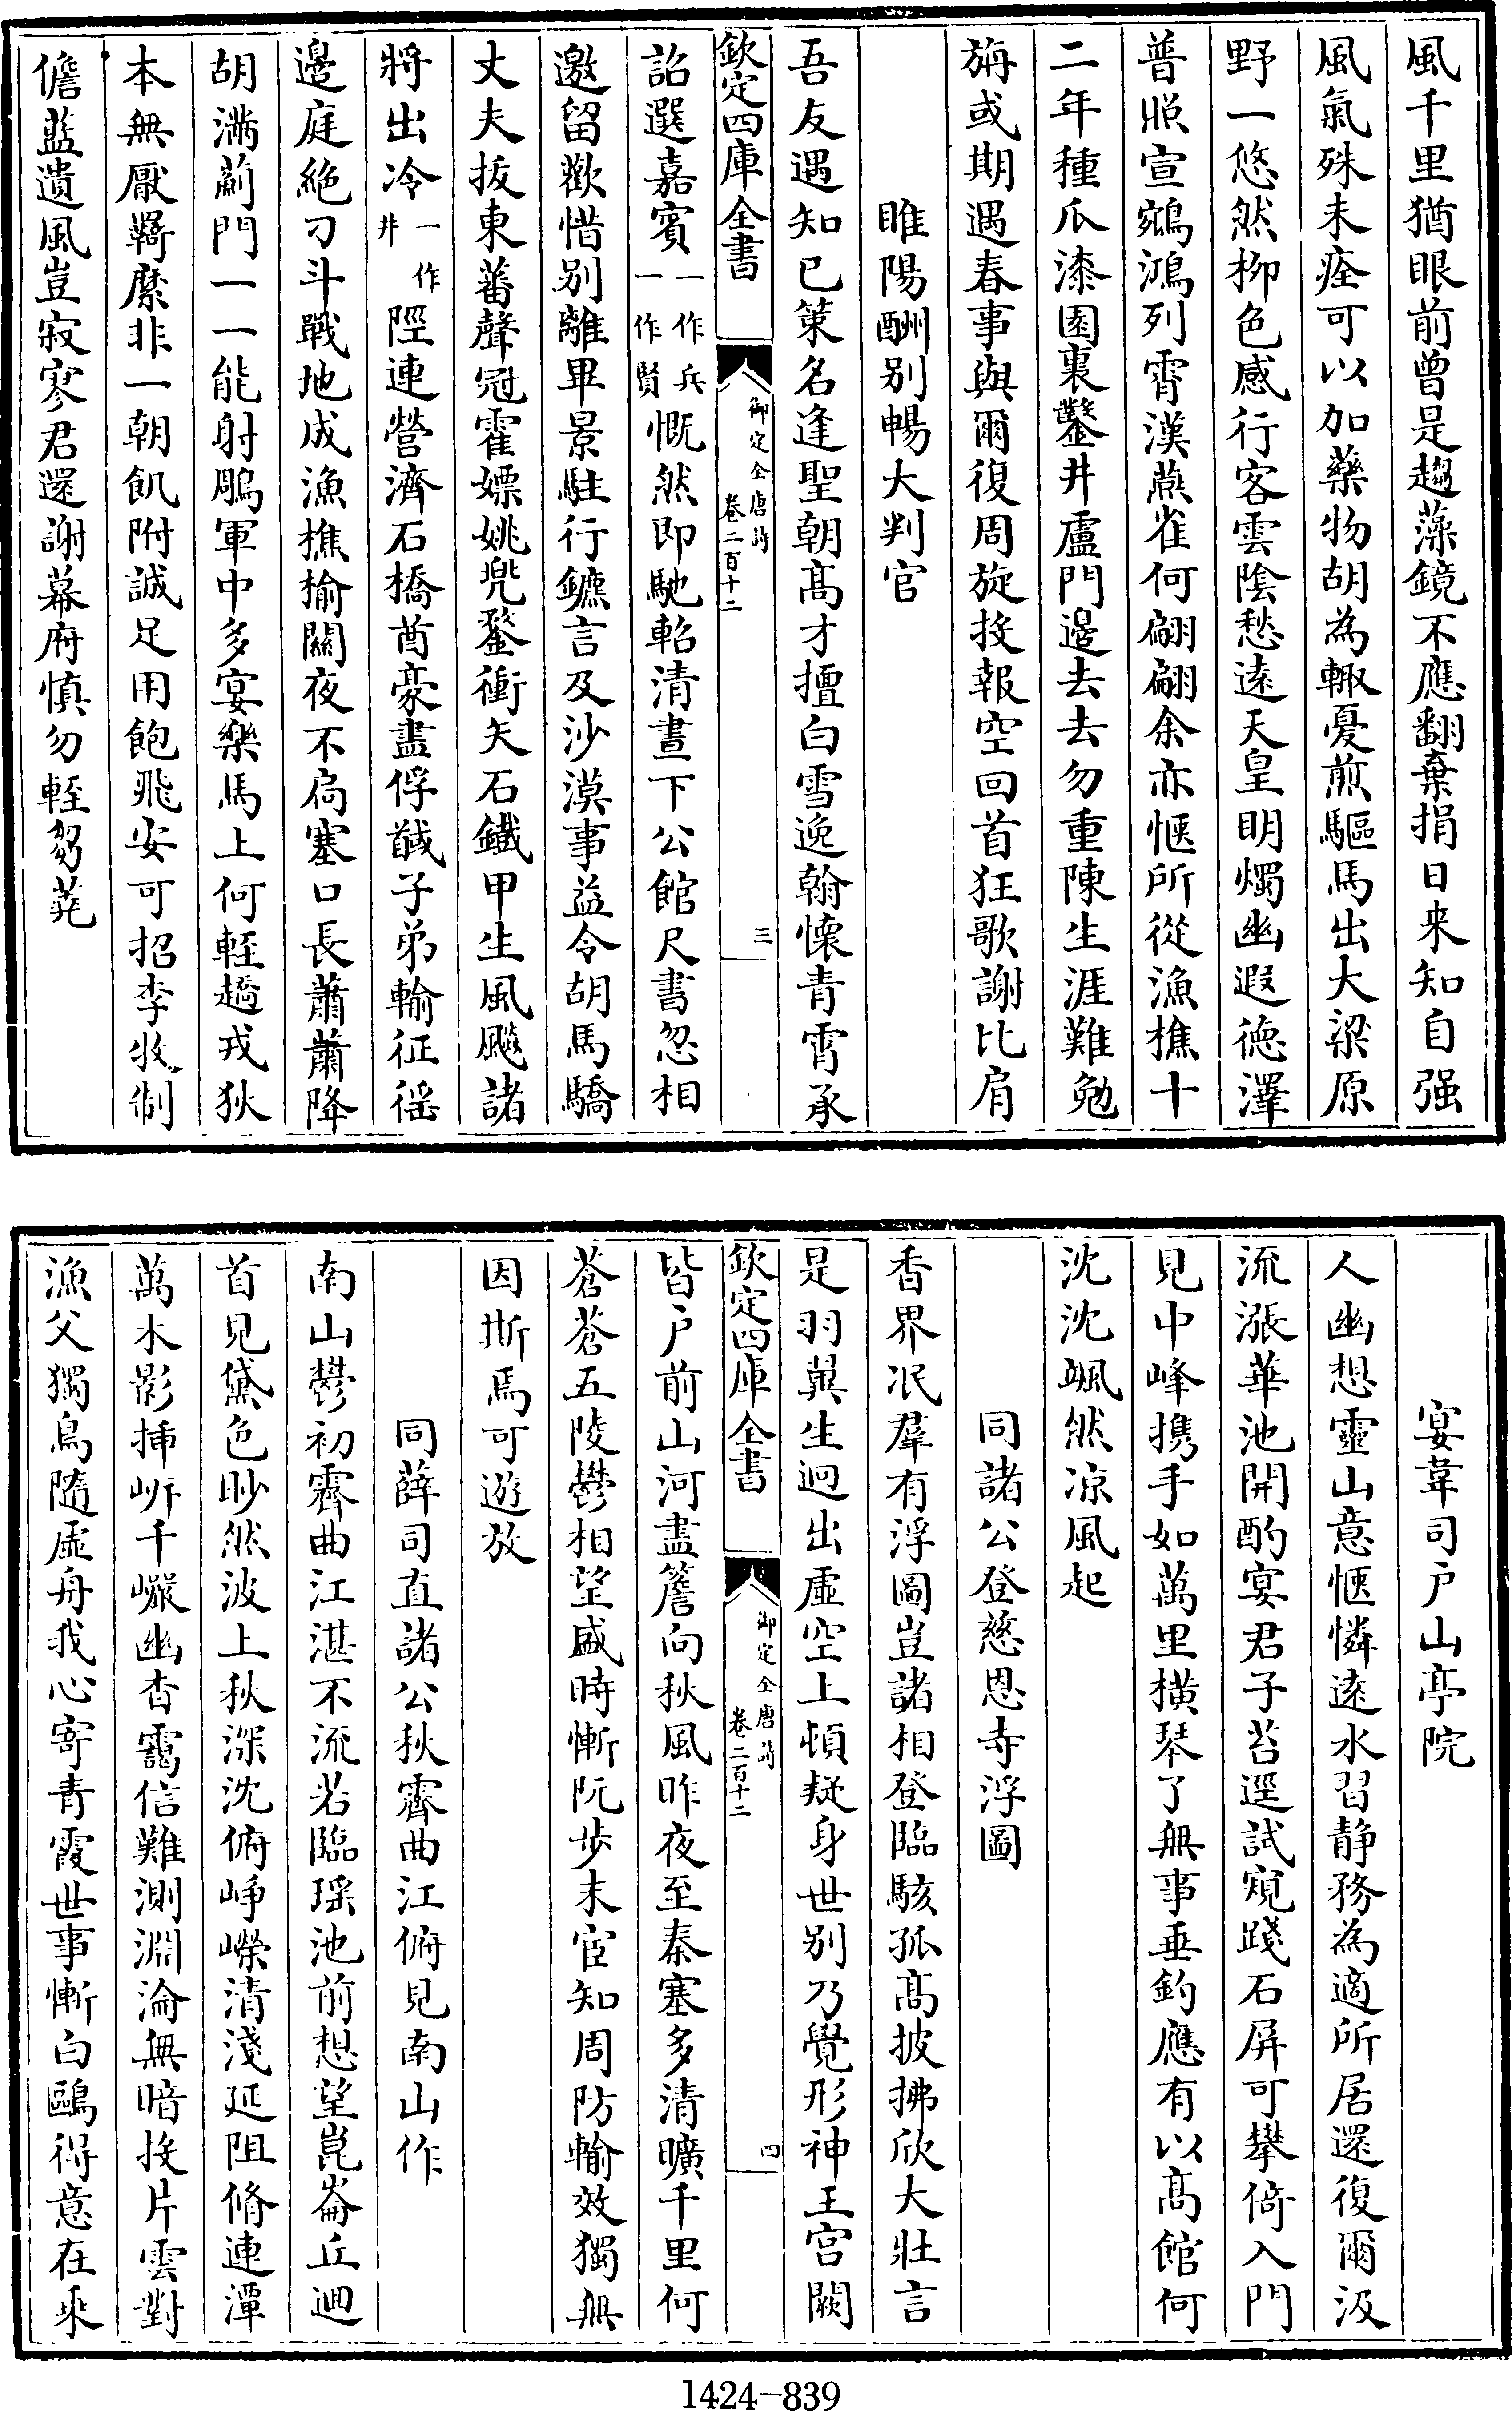 風千里猶眼前曾是趨藻鏡不應翻棄捐日来知自强
風氣殊未痊可以加藥物胡為輙憂煎驅馬出大梁原
野一悠然柳色感行客雲陰愁遠天皇明燭幽遐德澤
普照宣鵷鴻列霄漢燕雀何翩翩余亦愜所從漁樵十
二年種瓜漆園裏鑿井盧門邉去去勿重陳生涯難勉
旃或期遇春事與爾復周旋投報空回首狂歌謝比肩
睢陽酬别暢大判官
吾友遇知已策名逢聖朝髙才擅白雪逸翰懐青霄承
欽定四庫全書
御定全唐詩
卷二百十二
三
詔選嘉賓一作兵一作賢慨然即馳軺清晝下公館尺書忽相
邀留歡惜别離畢景駐行鑣言及沙漠事益令胡馬驕
丈夫拔東蕃聲冠霍嫖姚兜鍪衝矢石鐵甲生風飈諸
將出冷一作井陘連營濟石橋酋豪盡俘馘子弟輸征徭
邊庭絶刁斗戰地成漁樵榆闗夜不扃塞口長蕭蕭降
胡滿薊門一一能射鵰軍中多宴樂馬上何輕趫戎狄
本無厭羈縻非一朝飢附誠足用飽飛安可招李牧制
儋藍遺風豈寂寥君還謝幕府慎勿輕芻蕘
宴韋司户山亭院
人幽想靈山意愜憐遠水習静務為適所居還復爾汲
流漲華池開酌宴君子苔逕試窺踐石屏可攀倚入門
見中峰携手如萬里横琴了無事垂釣應有以髙館何
沈沈颯然凉風起
同諸公登慈恩寺浮圖
香界泯羣有浮圖豈諸相登臨駭孤髙披拂欣大壯言
是羽翼生迥出虚空上頓疑身世别乃覺形神王宫闕
欽定四庫全書
御定全唐詩
卷二百十二
四
皆户前山河盡簷向秋風昨夜至秦塞多清曠千里何
蒼蒼五陵鬱相望盛時慚阮步末宦知周防輸效獨無
因斯焉可遊放
同薛司直諸公秋霽曲江俯見南山作
南山鬱初霽曲江湛不流若臨瑶池前想望崑崙丘迴
首見黛色眇然波上秋深沈俯崢嶸清淺延阻脩連潭
萬木影揷岓千巖幽杳靄信難測淵淪無暗投片雲對
漁父獨鳥隨虚舟我心寄青霞世事慚白鷗得意在乘
1424-839